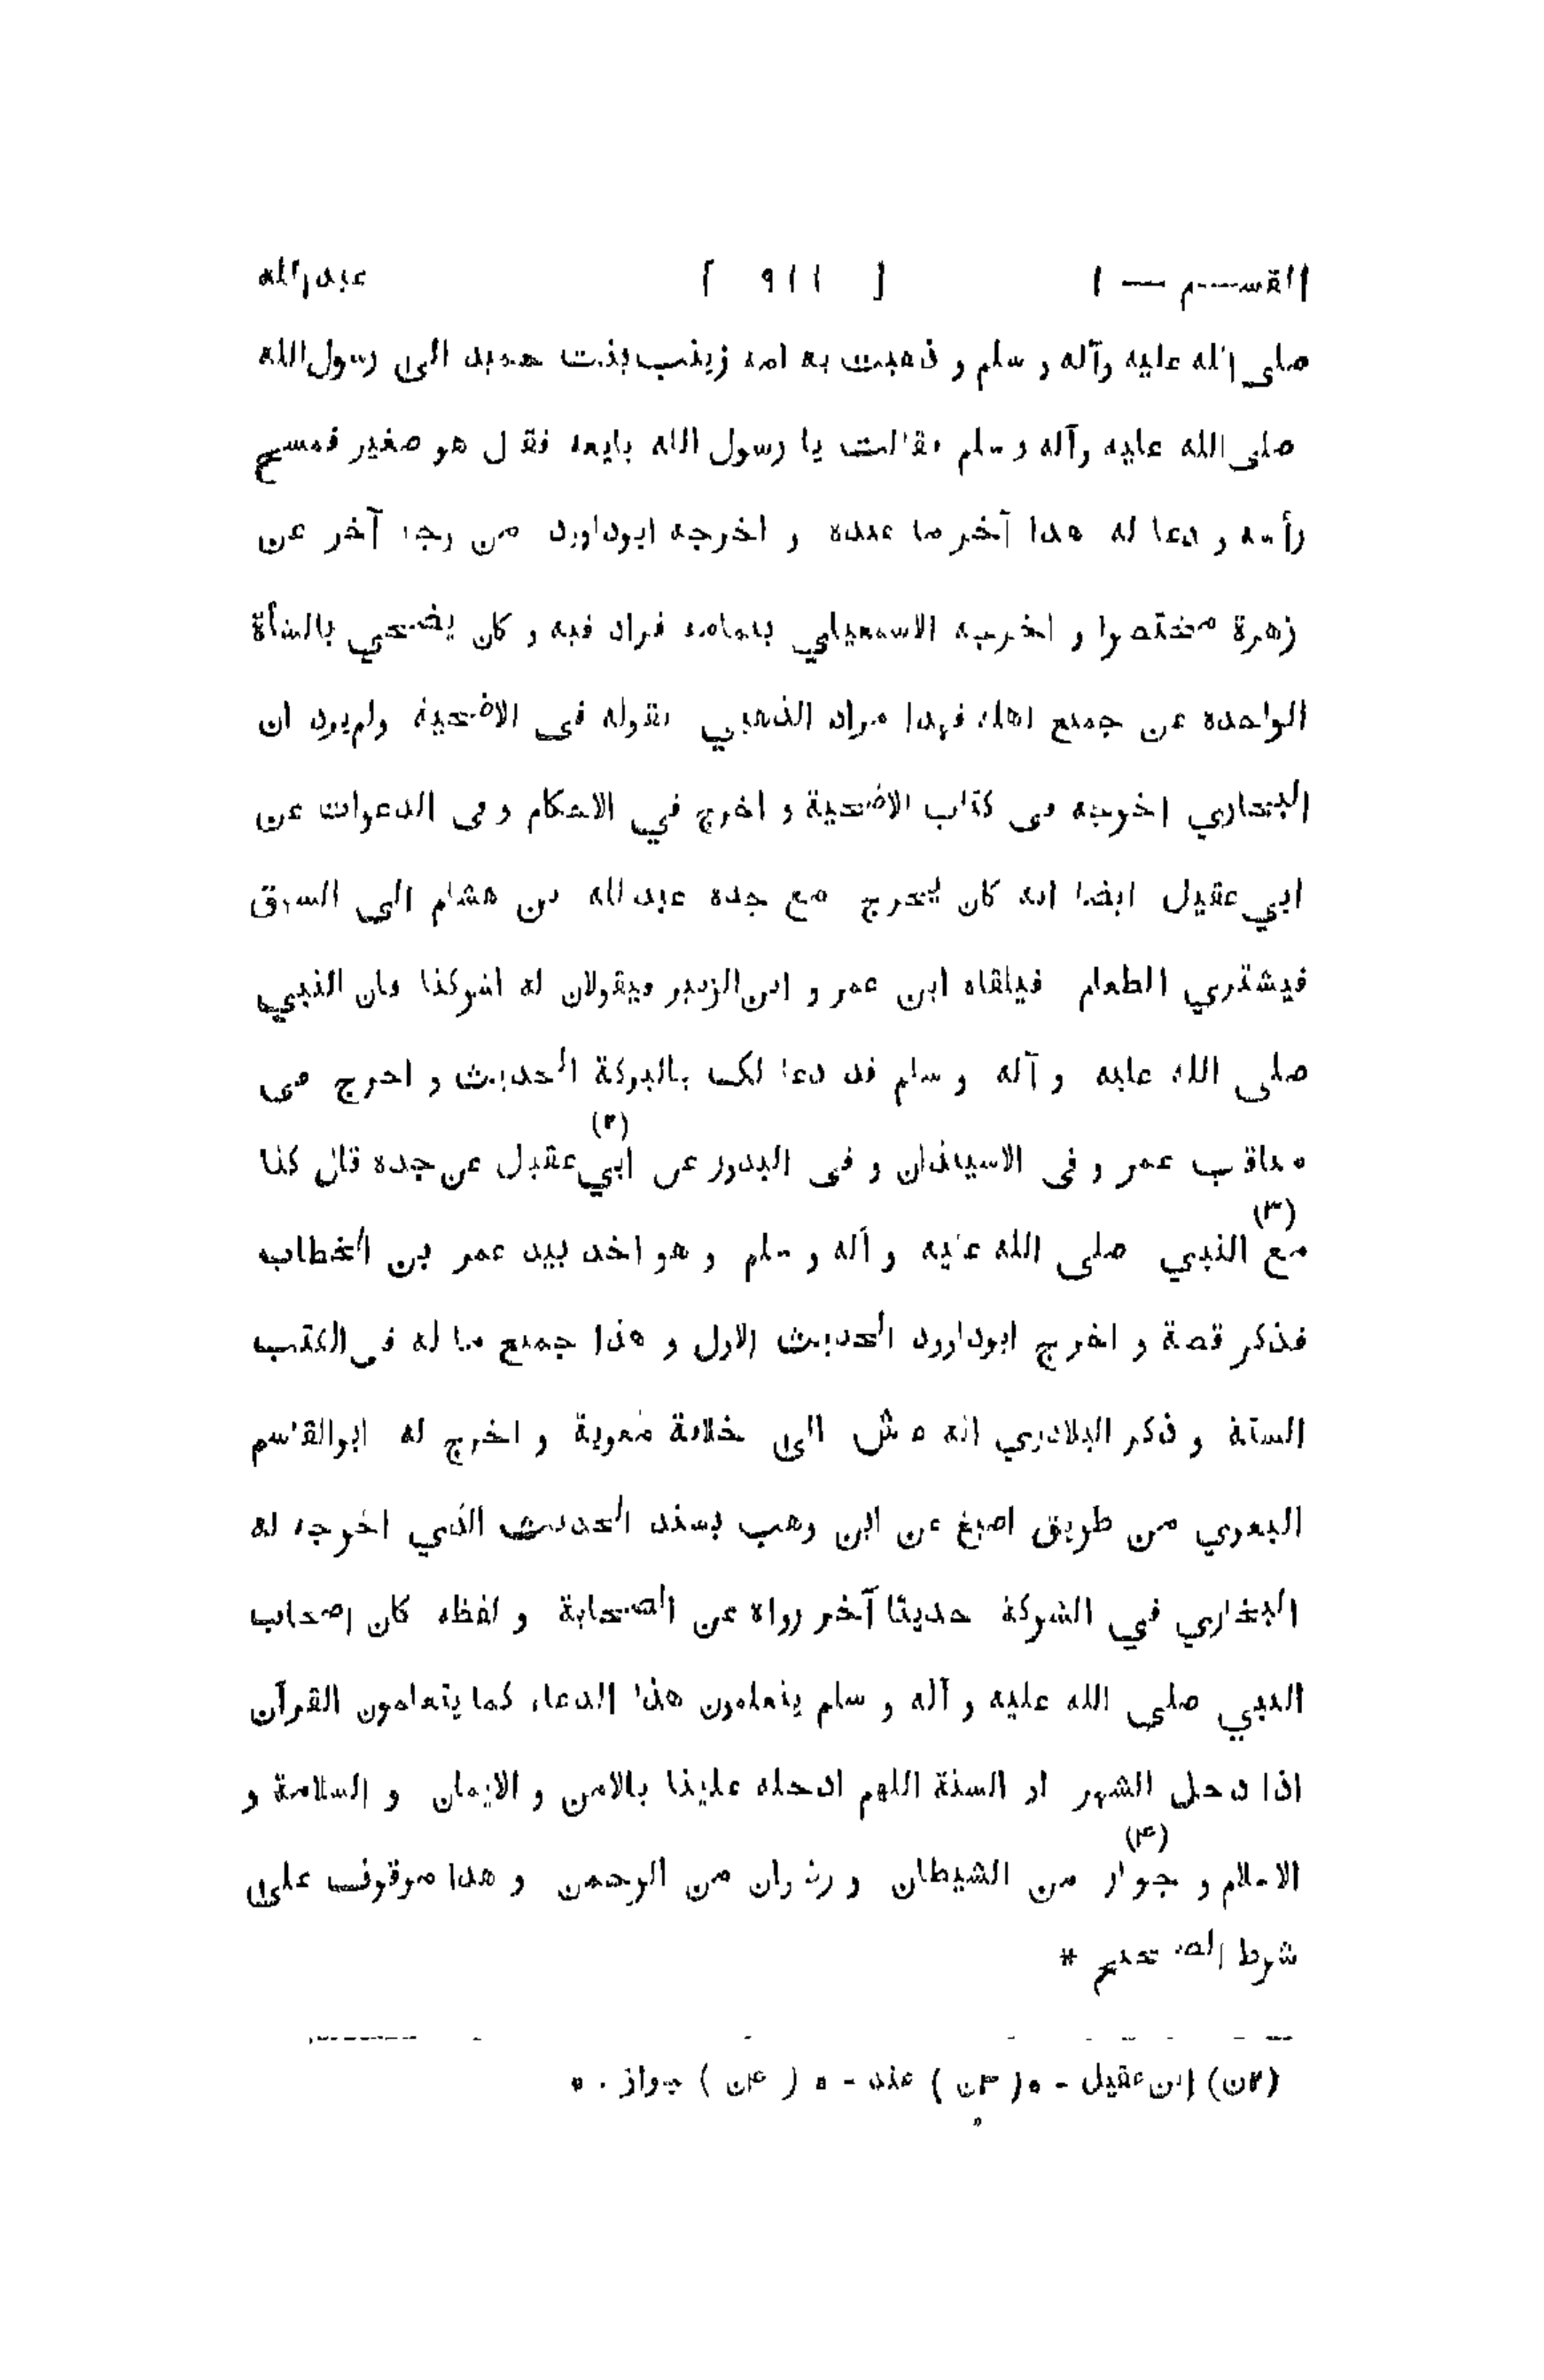 القسم — ١ [ ٩١١ ] عبدالله
صلى الله عليه وآله و سلم و ذهبت به امه زينب بنت حميد الى رسول الله
صلى الله عليه وآله و سلم فقالت يا رسول الله بايعه فقال هو صغير فمسح
رأسه و دعا له هذا آخر ما عنده و اخرجه ابوداود من وجه آخر عن
زهرة مختصرا و اخرجه الاسمعيلي بتمامه فزاد فيه و كان يضحي بالشأة
الواحدة عن جميع اهله فهذا مراد الذهبي بقوله فى الاضحية ولم يرد ان
البخاري اخرجه فى كتاب الاضحية و اخرج في الاحكام و فى الدعوات عن
ابي عقيل ايضا انه كان يخرج مع جده عبدالله بن هشام الى السوق
فيشتري الطعام فيلقاه ابن عمر و ابن الزبير فيقولان له اشركنا فان النبي
صلى الله عليه و آله و سلم قد دعا لك بالبركة الحديث و اخرج فى
مناقب عمر و فى الاستيذان و فى النذور عن ابي (٢) عقيل عن جده قال كنا
مع (٣) النبي صلى الله عليه و آله و سلم و هو اخذ بيد عمر بن الخطاب
فذكر قصة و اخرج ابوداود الحديث الاول و هذا جميع ما له فى الكتب
الستة و ذكر البلاذري انه عاش الى خلافة معوية و اخرج له ابوالقاسم
البغوي من طريق اصبغ عن ابن وهب بسند الحديث الذي اخرجه له
البخاري في الشركة حديثا آخر رواه عن الصحابة و لفظه كان اصحاب
النبي صلى الله عليه و آله و سلم يتعلمون هذا الدعاء كما يتعلمون القرآن
اذا دخل الشهر او السنة اللهم ادخله علينا بالامن و الايمان و السلامة و
الاسلام و جوار (۴) من الشيطان و رضوان من الرحمن و هذا موقوف على
شرط الصحيح *
(٢ن) ابن عقيل - ( ٣ن ) عند - ( ۴ن ) جواز .